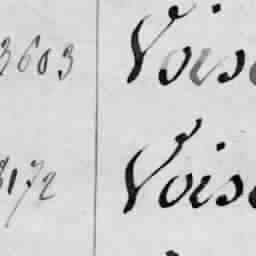 3603 Vois
8172 Vois